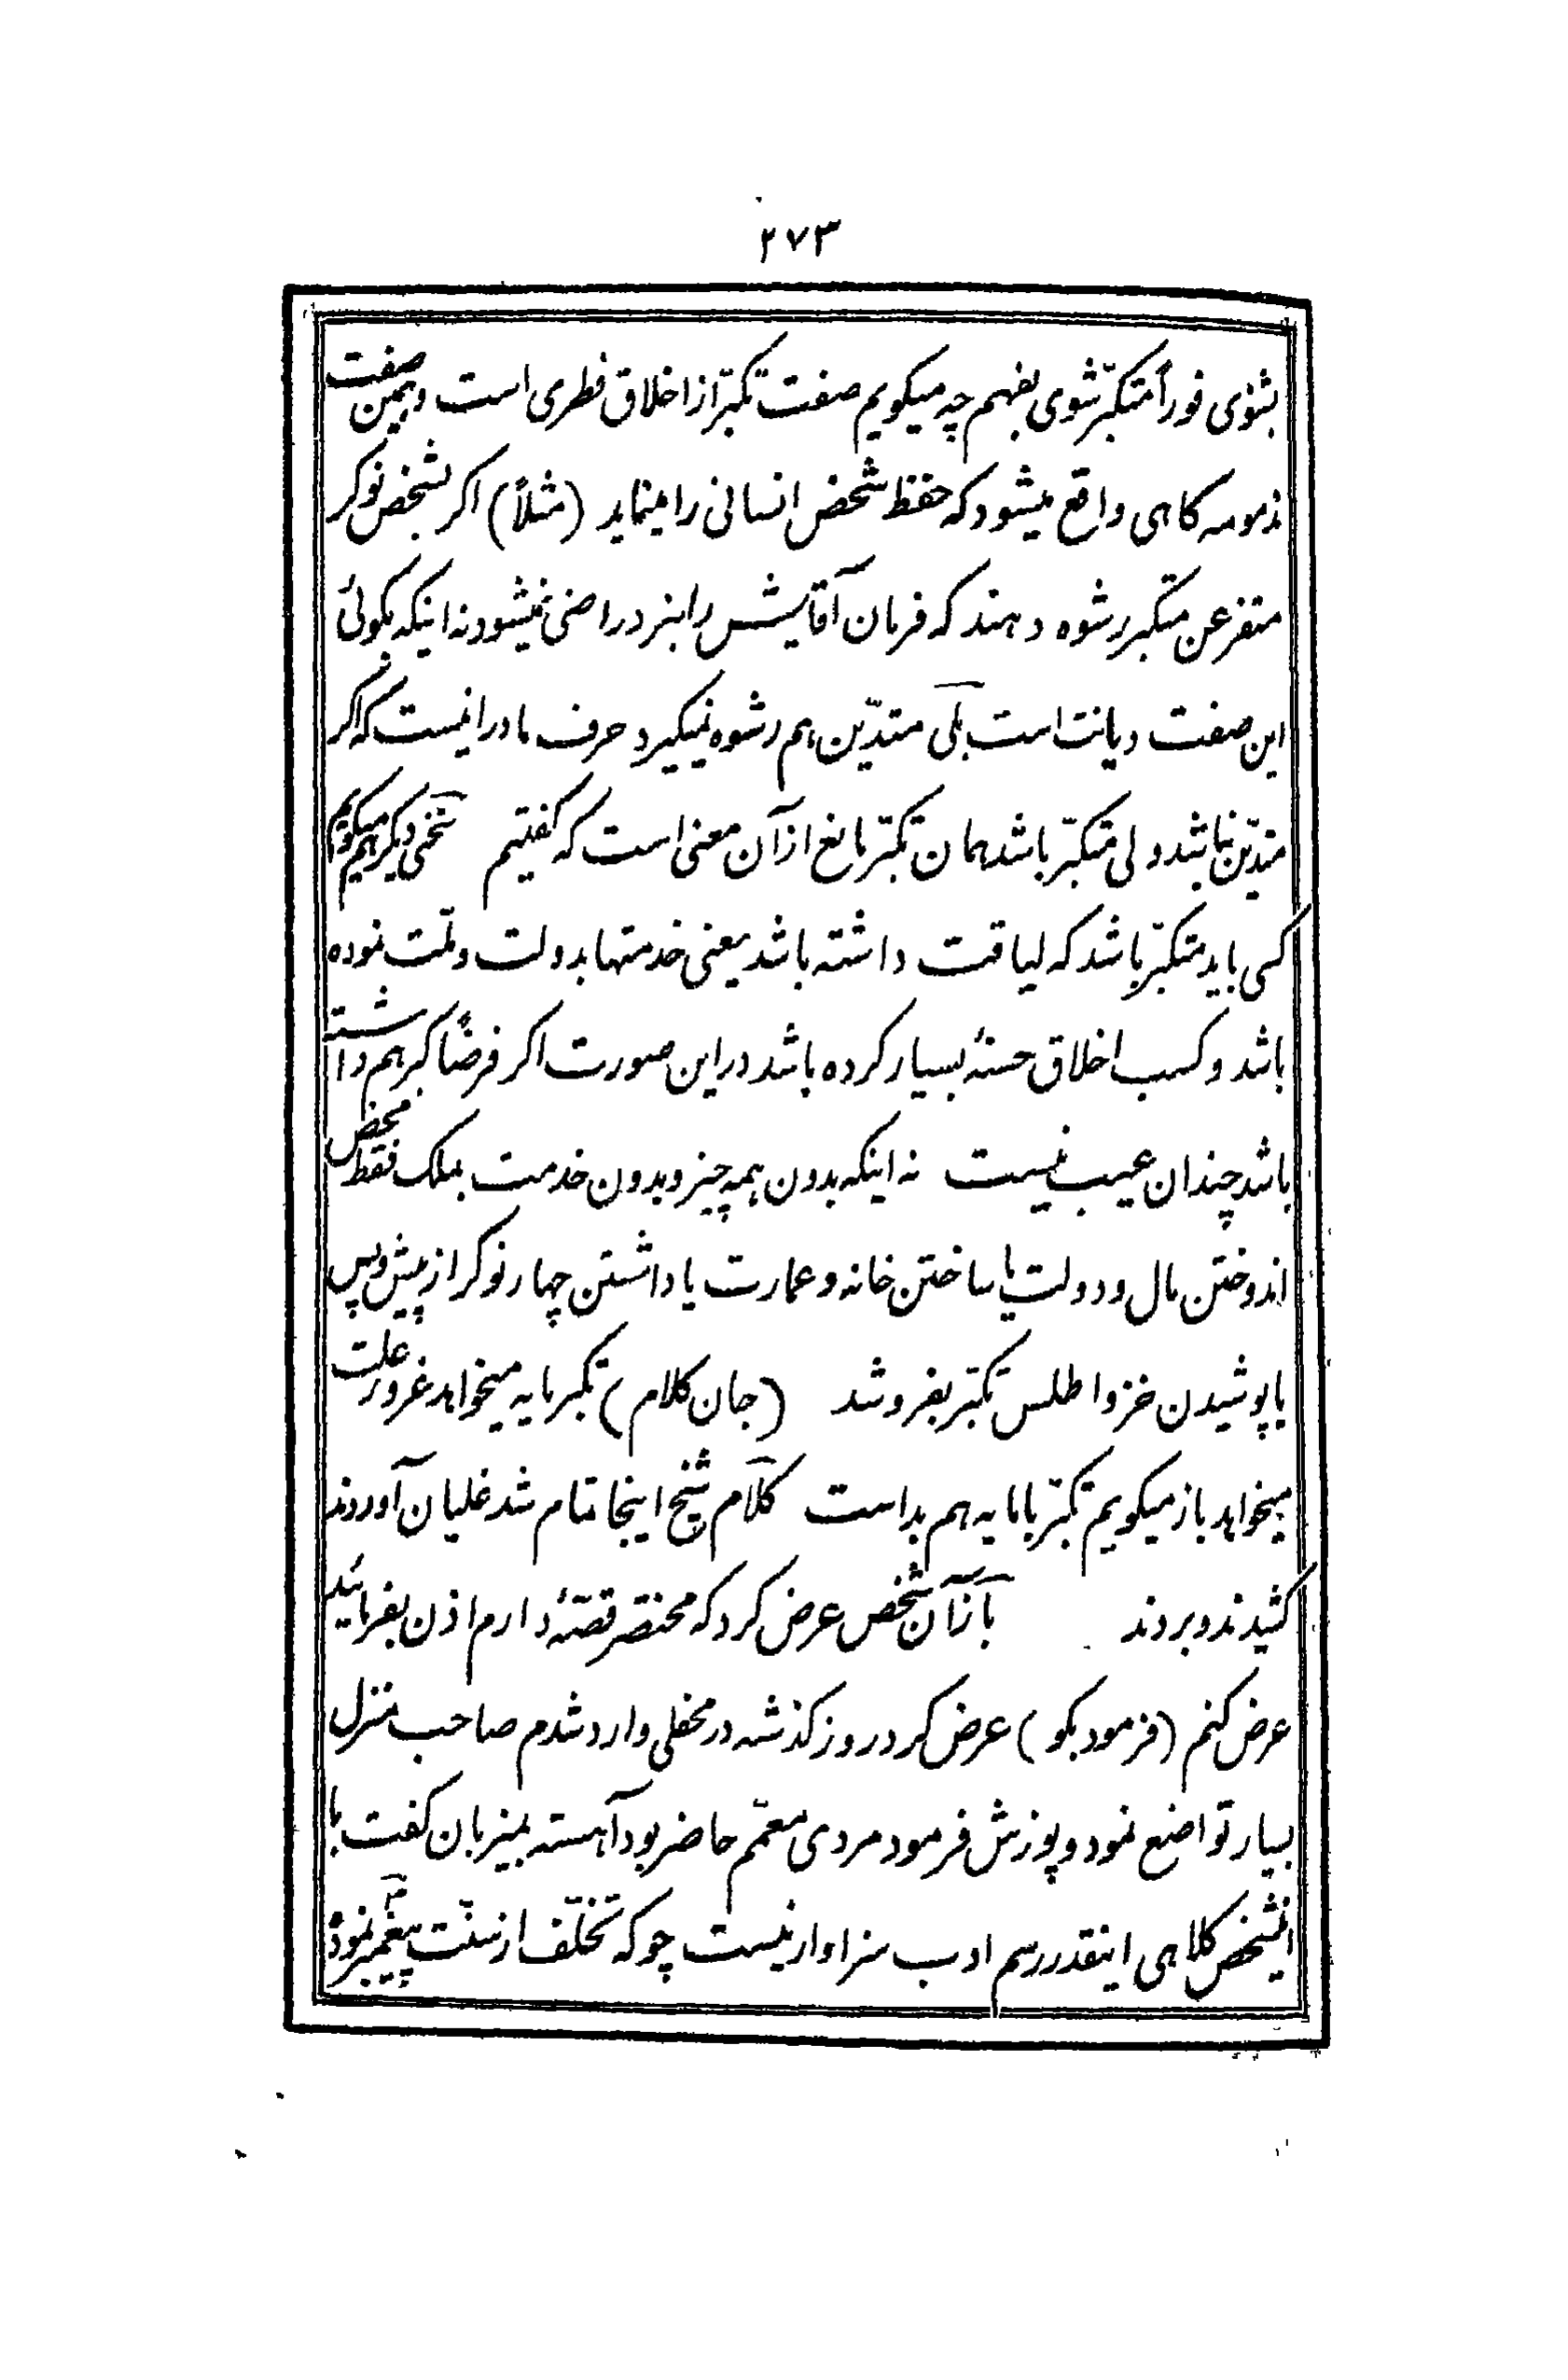 ۲۷۳
بشوی فوراً متکبّر شوی بفهم چه میکویم صفت تکبّر از اخلاق فطری است و همین صفت
ذمومه کاهی واقع میشود که حفظ شخص انسانی را مینماید (مثلاً) اکر بشخص نوکر
متفرعن متکبر رشوه دهند که فرمان آقایش را ببرد راضی نمیشود نه اینکه بکوئی
این صفت دیانت است بلی متدیّن هم رشوه نمیکیرد حرف مادر اینست که اکر
متدیّن نباشد ولی متکبّر باشد همان تکبّر مانع از آن معنی است که کفتیم سخنی دیکر هم میکویم
کسی باید متکبّر باشد که لیاقت داشته باشد یعنی خدمتها بدولت و ملّت نموده
باشد و کسب اخلاق حسنهٔ بسیار کرده باشد در این صورت اکر فرضاً کبر هم داشته
باشد چندان عیب نیست نه اینکه بدون همه چیز و بدون خدمت بملک فقط محض
اندوختن مال و دولت یا ساختن خانه و عمارت یا داشتن چهار نوکر از پیش و پس
یا پوشیدن خز و اطلس تکبّر بفروشد (جان کلام) تکبر مایه میخواهد غرور علت
میخواهد باز میکویم تکبّر با مایه هم بد است کلام شیخ اینجا تمام شد غلیان آوردند
کشیدند و بردند باز آن شخص عرض کرد که مختصر قصّهٔ دارم اذن بفرمائید
عرض کنم (فرمود بکو) عرض کرد روز کذشه در محفلی وارد شدم صاحب منزل
بسیار تواضع نمود و پوزش فرمود مردی معمّم حاضر بود آهسته بمیزبان کفت با
اینشخص کلاهی اینقدر رسم ادب سزاوار نیست چو که تخلّف از سنّت پیغمبر نمودهٔ